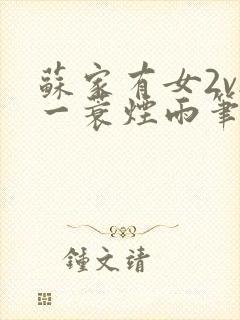 蘇家有女2v
一蓑煙雨筆
鍾文靖